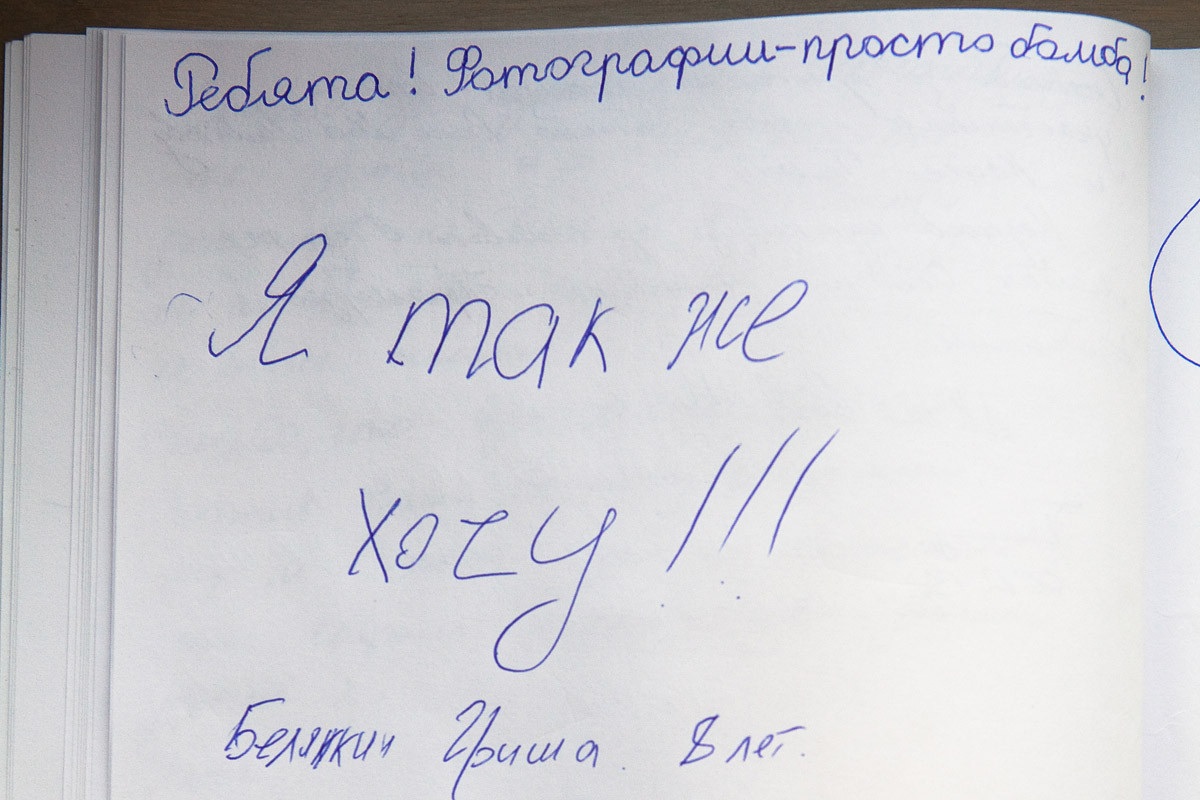 Ребята! Фотографии-просто бомба!
Я так же
хочу!!!
Гриша 8 лет.